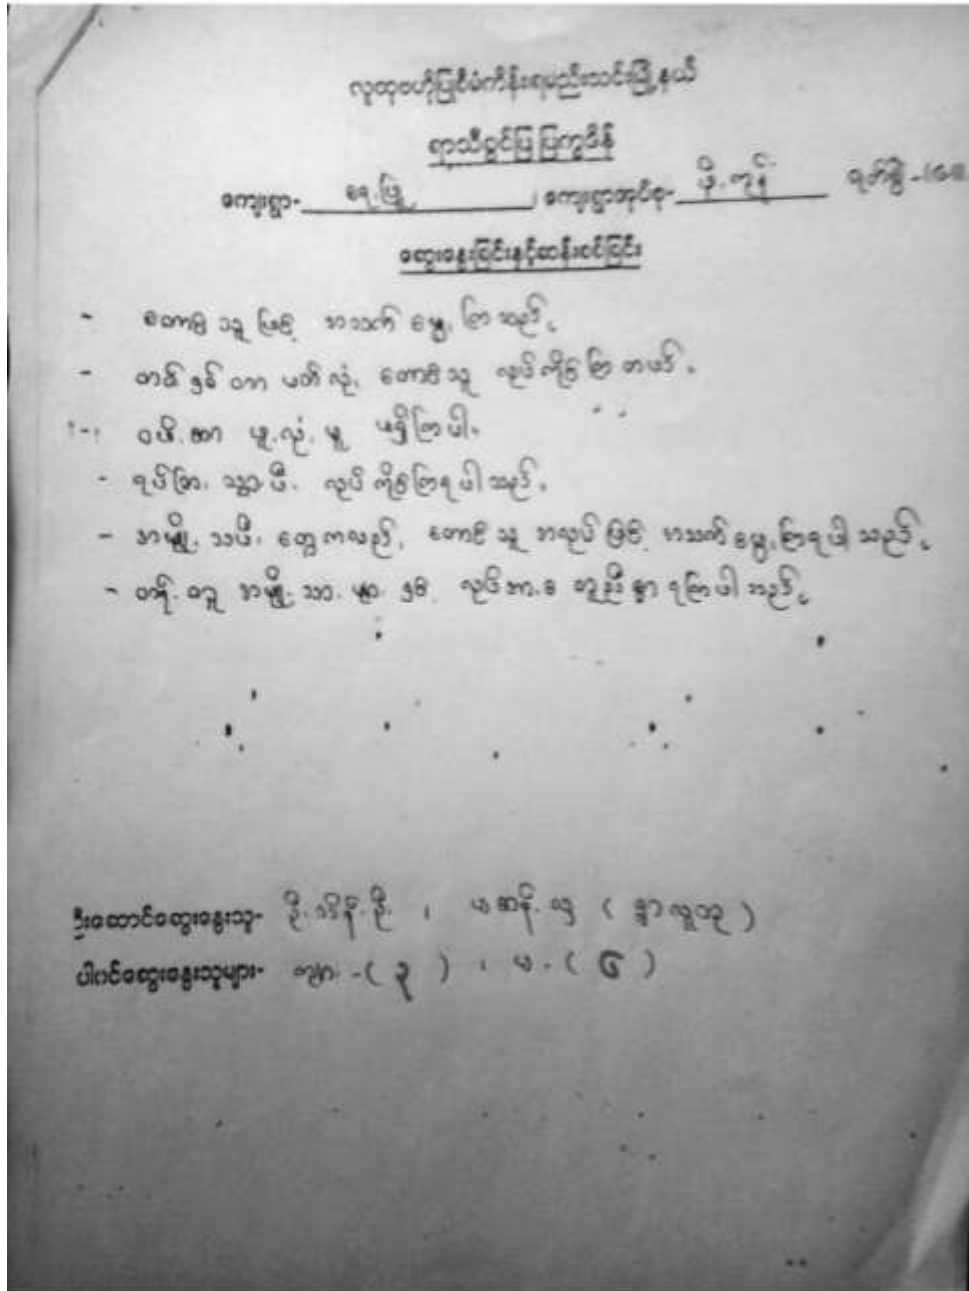 လူထုဗဟိုပြုစီမံကိန်းရမည်းသင်းမြို့နယ်
ရာသီခွင်ပြ ပြက္ခဒိန်
ကျေးရွာ- ရေဖြူ ၊ ကျေးရွာအုပ်စု- ဖို့ကုန်း ရက်စွဲ -
ဆွေးနွေးခြင်းနှင့်ဆန်းစစ်ခြင်း
- တောင်သူ ဖြင့် အသက် မွေး ကြ သည်။
- တစ် နှစ် တာ ပတ် လုံး တောင်သူ လုပ်ကိုင် ကြ တယ်။
- ဝမ်းစာ ဖူလုံ မူ မရှိကြပါ။
- ရပ်ခြား သွား ပီး လုပ် ကိုင်ကြရပါ သည်။
- အမျိုး သမီး တွေကလည်း တောင်သူ အလုပ် ဖြင့် အသက် မွေး ကြရပါ သည်။
- အမျိုး သား များ နှင့် လုပ်အားခ တူညီ စွာ ရကြပါ သည်။
ဦးဆောင်ဆွေးနွေးသူ- ဦးသိန်းဦး ၊ မဆန်းလှ ( ရွာလူထု )
ပါဝင်ဆွေးနွေးသူများ- ကျား -( ၃ ) ၊ မ - ( ၆ )